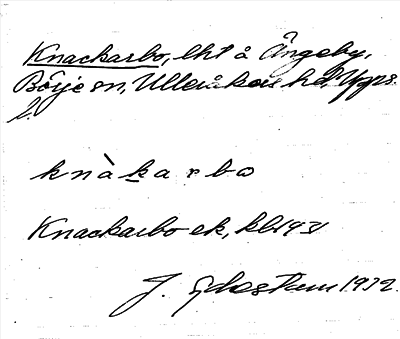 Knackarbo, lht å Ängeby,
Börje sn, Ulleråkers hd, Upps.
l.
knàkarbo
Knackarbo ek, kbl 1931
J. 1932.